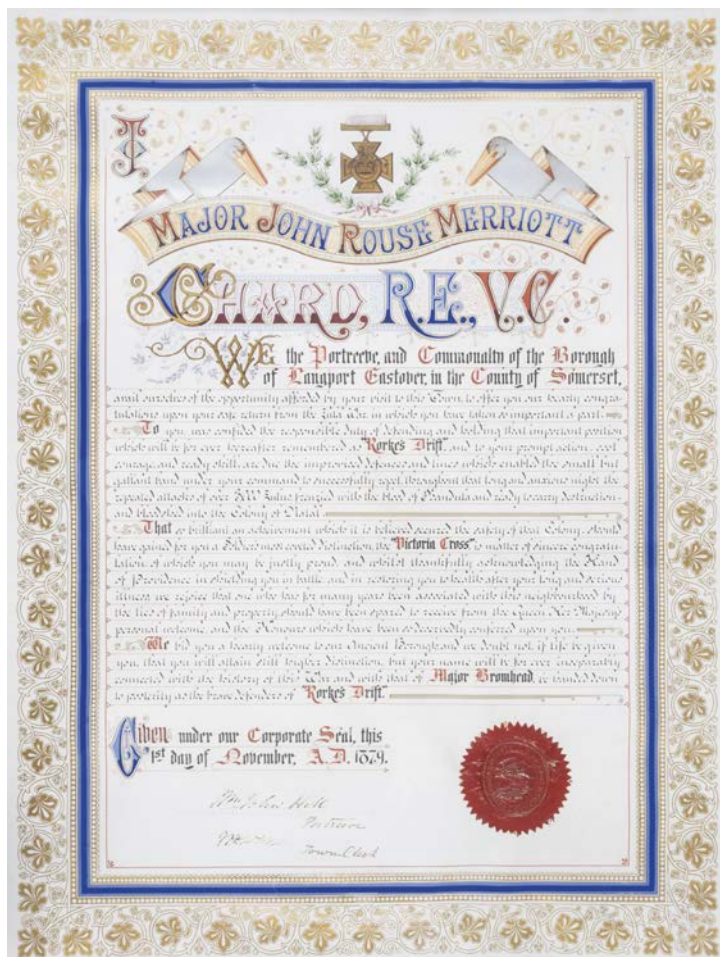 To
MAJOR JOHN ROUSE MERRIOTT
CHARD, R.E., V.C.
WE the Portreeve, and Commonalty of the Borough
of Langport Eastover, in the County of Somerset,
avail ourselves of the opportunity afforded by your visit to this Town, to offer you our hearty congra-
tulations upon your safe return from the Zulu War in which you have taken so important a part.
To you was confided the responsible duty of defending and holding that important position
which will be for ever hereafter remembered as "Rorke's Drift" and to your prompt action, cool
courage and ready skill, are due the improvised defences and lines which enabled the small but
gallant band under your command to successfully repel throughout that long and anxious night the
repeated attacks of over Zulus frenzied with the blood of Isandula and ready to carry destruction
and bloodshed into the Colony of Natal.
That so brilliant an achievement which it is believed secured the safety of that Colony, should
have gained for you a Soldiers most coveted distinction, the "Victoria Cross" is matter of sincere congratu-
lation, of which you may be justly proud, and whilst thankfully acknowledging the Hand
of Providence in shielding you in battle and in restoring you to health after your long and serious
illness we rejoice that one who has for many years been associated with this neighbourhood by
the ties of family and property, should have been spared to receive from the Queen Her Majesty's
personal welcome, and the Honours which have been so deservedly conferred upon you.
We bid you a hearty welcome to our Ancient Borough and we doubt not, if life be given
you, that you will attain still higher distinction, but your name will be for ever inseparably
connected with the history of this War and with that of Major Bromhead, be handed down
to posterity as the brave defenders of "Rorke's Drift."
Given under our Corporate Seal, this
1st day of November, A.D. 1879.
Wm John Hill
Portreeve
Town Clerk